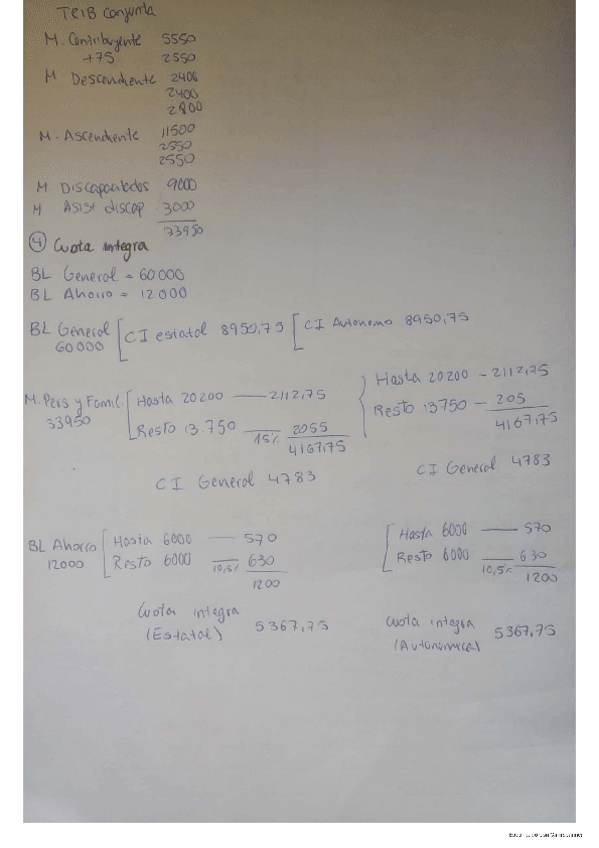 TRIB conjunta
M. Contribuyente 5550
+75 2550
M Descendiente 2400
2400
2800
M. Ascendiente 11500
2550
2550
M Discapacitados 9000
M Asist discap 3000
33950
④ Cuota integra
BL General = 60000
BL Ahorro = 12000
BL General 60000 [ CI estatal 8950,75 [ CI Autonomo 8950,75
M. Pers y Famil. 33950
Hasta 20200 — 2112,75
Resto 13.750 — 15% 2055
4167,75
Hasta 20200 - 2112,75
Resto 13750 - 205
4167,75
CI General 4783
CI General 4783
BL Ahorro 12000
Hasta 6000 — 570
Resto 6000 — 10,5% 630
1200
Hasta 6000 — 570
Resto 6000 — 10,5% 630
1200
Cuota integra (Estatal) 5367,75
Cuota integra (Autonomica) 5367,75